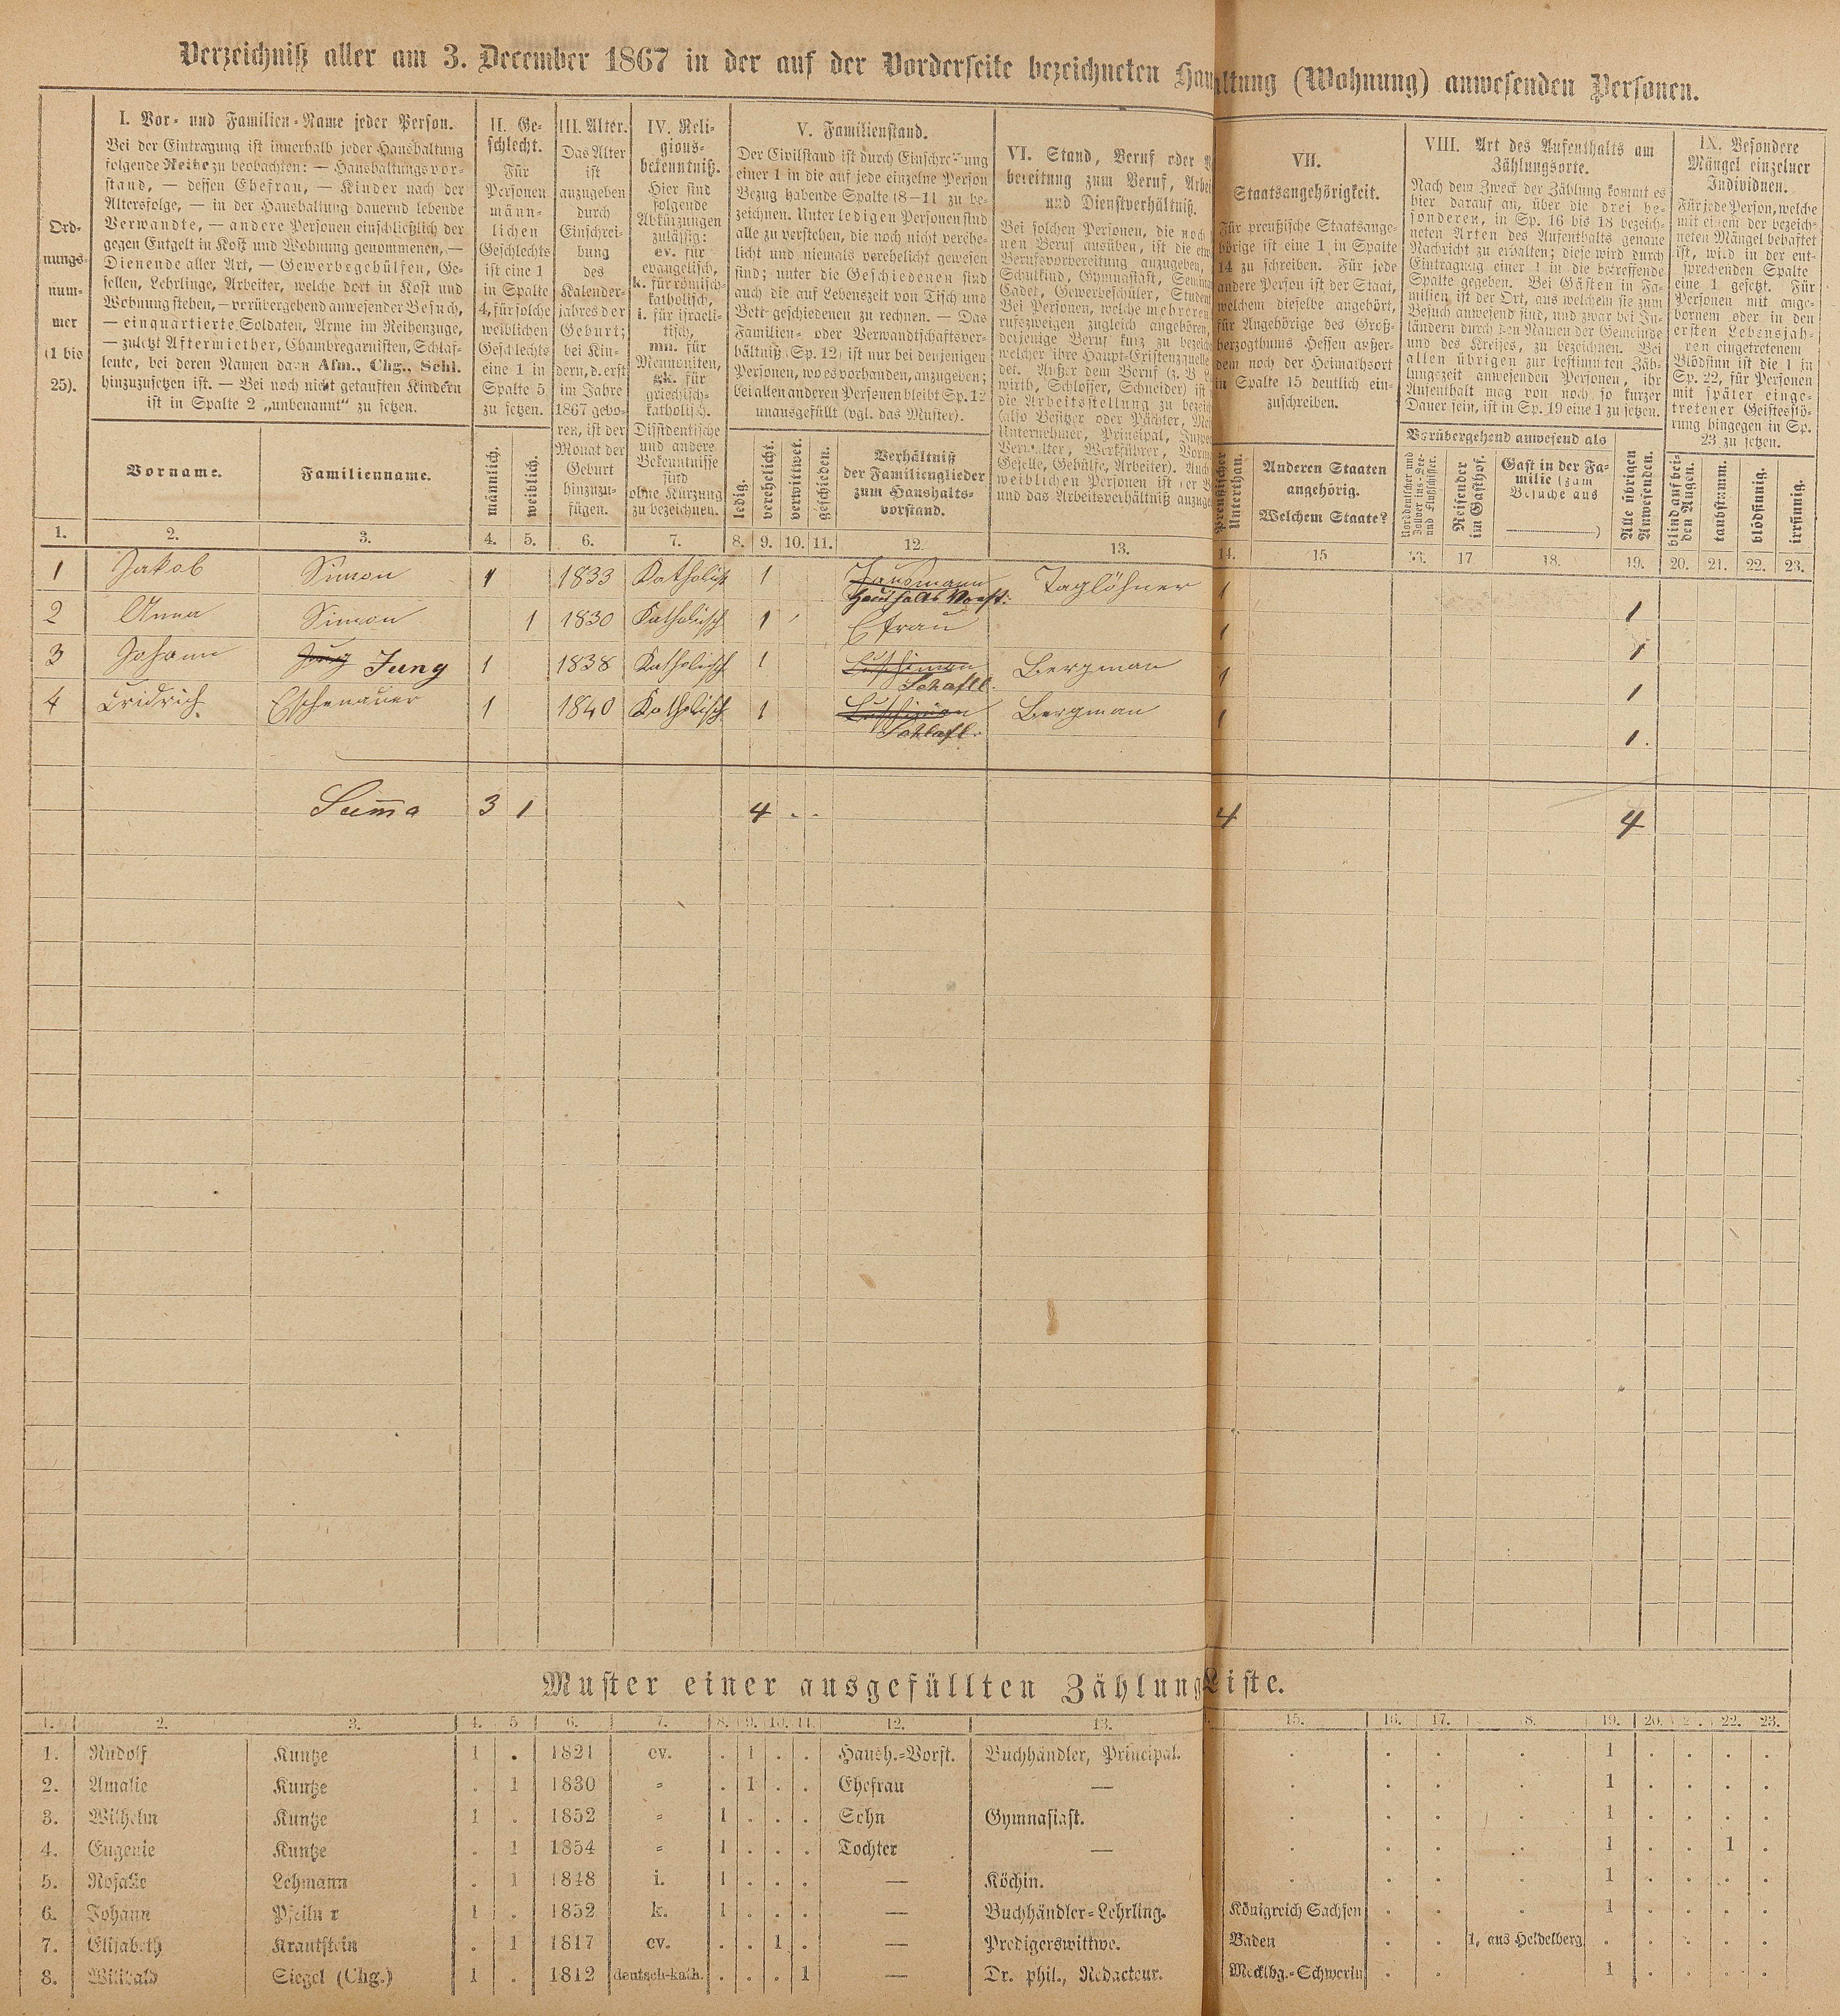 Verzeichniß aller am 3. December 1867 in der auf der Vorderseite bezeichneten Hau ltung (Wohnung) anwesenden Personen.
Ord-
nungs-
num-
mer
(1 bis
25).
I. Vor- und Familien-Name jeder Person.
Bei der Eintragung ist innerhalb jeder Haushaltung
folgende Reihe zu beobachten: — Haushaltungsvor-
stand, — dessen Ehefrau, — Kinder nach der
Altersfolge, — in der Haushaltung dauernd lebende
Verwandte, — andere Personen einschließlich der
gegen Entgelt in Kost und Wohnung genommenen, —
Dienende aller Art, — Gewerbsgehülfen, Ge-
sellen, Lehrlinge, Arbeiter, welche dort in Kost und
Wohnung stehen, — vorübergehend anwesender Besuch,
— einquartierte Soldaten, Arme im Reihenzuge,
— zuletzt Aftermiether, Chambregarnisten, Schlaf-
leute, bei deren Namen dann Afm., Chg., Schl.
hinzuzusetzen ist. — Bei noch nicht getauften Kindern
ist in Spalte 2 „unbenannt“ zu setzen.
Vorname.
Familienname.
II. Ge-
schlecht.
Für
Personen
männ-
lichen
Geschlechts
ist eine 1
in Spalte
4, für solche
weiblichen
Geschlechts
eine 1 in
Spalte 5
zu setzen.
männlich.
weiblich.
III. Alter.
Das Alter
ist
anzugeben
durch
Einschrei-
bung
des
Kalender-
jahres der
Geburt;
bei Kin-
dern, d. erst
im Jahre
1867 gebo-
ren, ist der
Monat der
Geburt
hinzuzu-
fügen.
IV. Reli-
gions-
bekenntniß.
Hier sind
folgende
Abkürzungen
zulässig:
ev. für
evangelisch,
k. für römisch-
katholisch,
i. für israeli-
tisch,
mn. für
Mennoniten,
gk. für
griechisch-
katholisch.
Dissidentische
und andere
Bekenntnisse
sind
ohne Kürzung
zu bezeichnen.
V. Familienstand.
Der Civilstand ist durch Einschreibung
einer 1 in die auf jede einzelne Person
Bezug habende Spalte (8—11) zu be-
zeichnen. Unter ledigen Personen sind
alle zu verstehen, die noch nicht verehe-
licht und niemals verehelicht gewesen
sind; unter die Geschiedenen sind
auch die auf Lebenszeit von Tisch und
Bett geschiedenen zu rechnen. — Das
Familien- oder Verwandtschaftsver-
hältniß (Sp. 12) ist nur bei denjenigen
Personen, wo es vorhanden, anzugeben;
bei allen anderen Personen bleibt Sp. 12
unausgefüllt (vgl. das Muster).
ledig.
verehelicht.
verwittwet.
geschieden.
Verhältniß
der Familienglieder
zum Haushalts-
vorstand.
VI. Stand, Beruf oder
bereitung zum Beruf, Arbei
und Dienstverhältniß.
Bei solchen Personen, die noch
nen Beruf ausüben, ist die
Berufsvorbereitung anzugeben,
Schulkind, Gymnasiast, Semina
Cadet, Gewerbeschüler, Student
Bei Personen, welche mehreren
rufszweigen zugleich angehören,
derjenige Beruf kurz zu bezeich
welcher ihre Haupt-Existenzquelle
det. Außer dem Beruf (z. B.
wirth, Schlosser, Schneider) ist
die Arbeitsstellung zu bezeich
(also Besitzer oder Pächter,
Unternehmer, Principal,
Verwalter, Werkführer,
Geselle, Gehülfe, Arbeiter). Auch
weiblichen Personen ist der
und das Arbeitsverhältniß anzuge
VII.
Staatsangehörigkeit.
Für preußische Staatsange-
hörige ist eine 1 in Spalte
14 zu schreiben. Für jede
andere Person ist der Staat,
welchem dieselbe angehört,
für Angehörige des Groß-
herzogthums Hessen außer-
dem noch der Heimathsort
in Spalte 15 deutlich ein-
zuschreiben.
Preußischer
Unterthan.
Anderen Staaten
angehörig.
Welchem Staate?
VIII. Art des Aufenthalts am
Zählungsorte.
Nach dem Zweck der Zählung kommt es
hier darauf an, über die drei be-
sonderen, in Sp. 16 bis 18 bezeich-
neten Arten des Aufenthalts genaue
Nachricht zu erhalten; diese wird durch
Eintragung einer 1 in die betreffende
Spalte gegeben. Bei Gästen in Fa-
milien ist der Ort, aus welchem sie zum
Besuch anwesend sind, und zwar bei In-
ländern durch den Namen der Gemeinde
und des Kreises, zu bezeichnen. Bei
allen übrigen zur bestimmten Zäh-
lungszeit anwesenden Personen, ihr
Aufenthalt mag von noch so kurzer
Dauer sein, ist in Sp. 19 eine 1 zu setzen.
Vorübergehend anwesend als
Norddeutscher und
Zollvereins-See-
und Flußschiffer.
Reisender
im Gasthof.
Gast in der Fa-
milie (zum
Besuche aus
)
Alle übrigen
Anwesenden.
IX. Besondere
Mängel einzelner
Individuen.
Für jede Person, welche
mit einem der bezeich-
neten Mängel behaftet
ist, wird in der ent-
sprechenden Spalte
eine 1 gesetzt. Für
Personen mit ange-
bornem oder in den
ersten Lebensjah-
ren eingetretenem
Blödsinn ist die 1 in
Sp. 22, für Personen
mit später einge-
tretener Geistesstö-
rung hingegen in Sp.
23 zu setzen.
blind auf bei-
den Augen.
taubstumm.
blödsinnig.
irrsinnig.
1. 2. 3. 4. 5. 6. 7. 8. 9. 10. 11. 12. 13. 14. 15 16. 17 18. 19. 20. 21. 22. 23.
1 Jakob Simon 1 1833 Katholisch 1 Hausmann Taglöhner 1 1
Haushalts Vorst.
2 Anna Simon 1 1830 Katholisch 1 Efrau 1 1
3 Johann Jung Jung 1 1838 Katholisch 1 Bergman 1 1
Schafll.
4 Fridrich Eschenauer 1 1840 Katholisch 1 Bergman 1 1.
Schlafl.
Suma 3 1 4 . . 4 4
Muster einer ausgefüllten Zählung Liste.
1. 2. 3. 4. 5 6. 7. 8. 9. 10. 11. 12. 13. 15. 16. 17. 8. 19. 20. 2 . 22. 23.
1. Rudolf Kuntze 1 . 1821 ev. . 1 . . Haush.-Vorst. Buchhändler, Principal. . . . . 1 . . . .
2. Amalie Kuntze . 1 1830 = . 1 . . Ehefrau — . . . . 1 . . . .
3. Wilhelm Kuntze 1 . 1852 = 1 . . . Sohn Gymnasiast. . . . . 1 . . . .
4. Eugenie Kuntze . 1 1854 = 1 . . . Tochter — . . . . 1 . . 1 .
5. Rosalie Lehmann . 1 1848 i. 1 . . . — Köchin. . . . . 1 . . . .
6. Johann Pfeilu r 1 . 1852 k. 1 . . . — Buchhändler-Lehrling. Königreich Sachsen . . . 1 . . . .
7. Elisabeth Krautstein . 1 1817 ev. . . 1 . — Predigerswittwe. Baden . . 1, aus Heidelberg . . . . .
8. Wilibald Siegel (Chg.) 1 . 1812 deutsch-kath. . . . 1 — Dr. phil., Redacteur. Mecklbg.-Schwerin . . . 1 . . . .